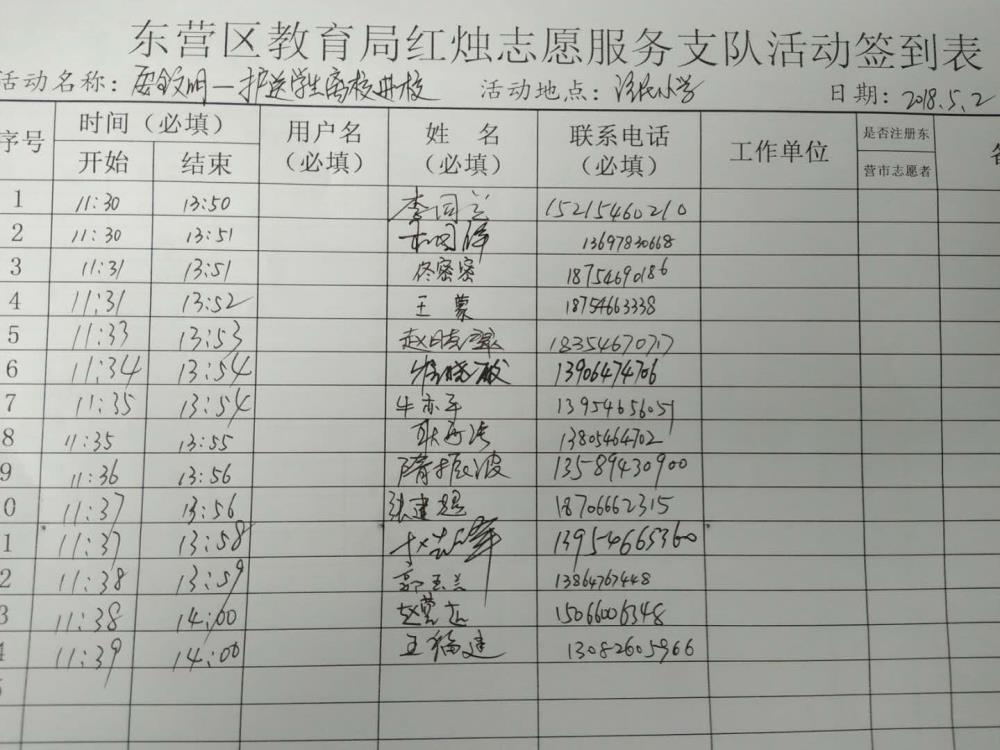 东营区教育局红烛志愿服务支队活动签到表
活动名称：文明一护送学生离校进校 活动地点：小学 日期：2018.5.2
序号 时间（必填） 用户名（必填） 姓名（必填） 联系电话（必填） 工作单位 是否注册东营市志愿者
开始 结束
1 11:30 13:50 李 15215460210
2 11:30 13:51 13697830668
3 11:31 13:51 佟密密 18754690186
4 11:31 13:52 王蒙 18754663338
5 11:33 13:53 赵晓翠 18354670717
6 11:34 13:54 13906474706
7 11:35 13:54 牛亦平 13954656051
8 11:35 13:55 耿 13805464702
9 11:36 13:56 隋振波 13589430900
0 11:37 13:56 张建超 18706662315
1 11:37 13:58 13954665360
2 11:38 13:59 郭玉兰 13864767448
3 11:38 14:00 赵 15066006348
4 11:39 14:00 王福建 13082605966
5